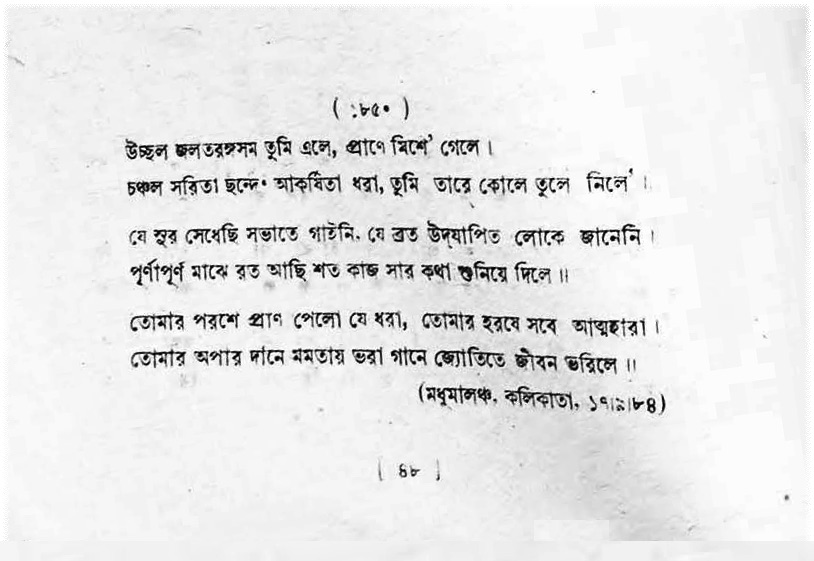 ( ১৮৫০ )
উচ্ছল জলতরঙ্গসম তুমি এলে, প্রাণে মিশে' গেলে ।
চঞ্চল সরিতা ছন্দে আকর্ষিতা ধরা, তুমি তারে কোলে তুলে নিলে' ।
যে সুর সেধেছি সভাতে গাইনি, যে ব্রত উদ্‌যাপিত লোকে জানেনি ।
পূর্ণাপূর্ণ মাঝে রত আছি শত কাজ সার কথা শুনিয়ে দিলে ॥
তোমার পরশে প্রাণ পেলো যে ধরা, তোমার হরষে সবে আত্মহারা ।
তোমার অপার দানে মমতায় ভরা গানে জ্যোতিতে জীবন ভরিলে ॥
(মধুমালঞ্চ, কলিকাতা, ১৭।৯।৮৪)
[ ৪৮ ]